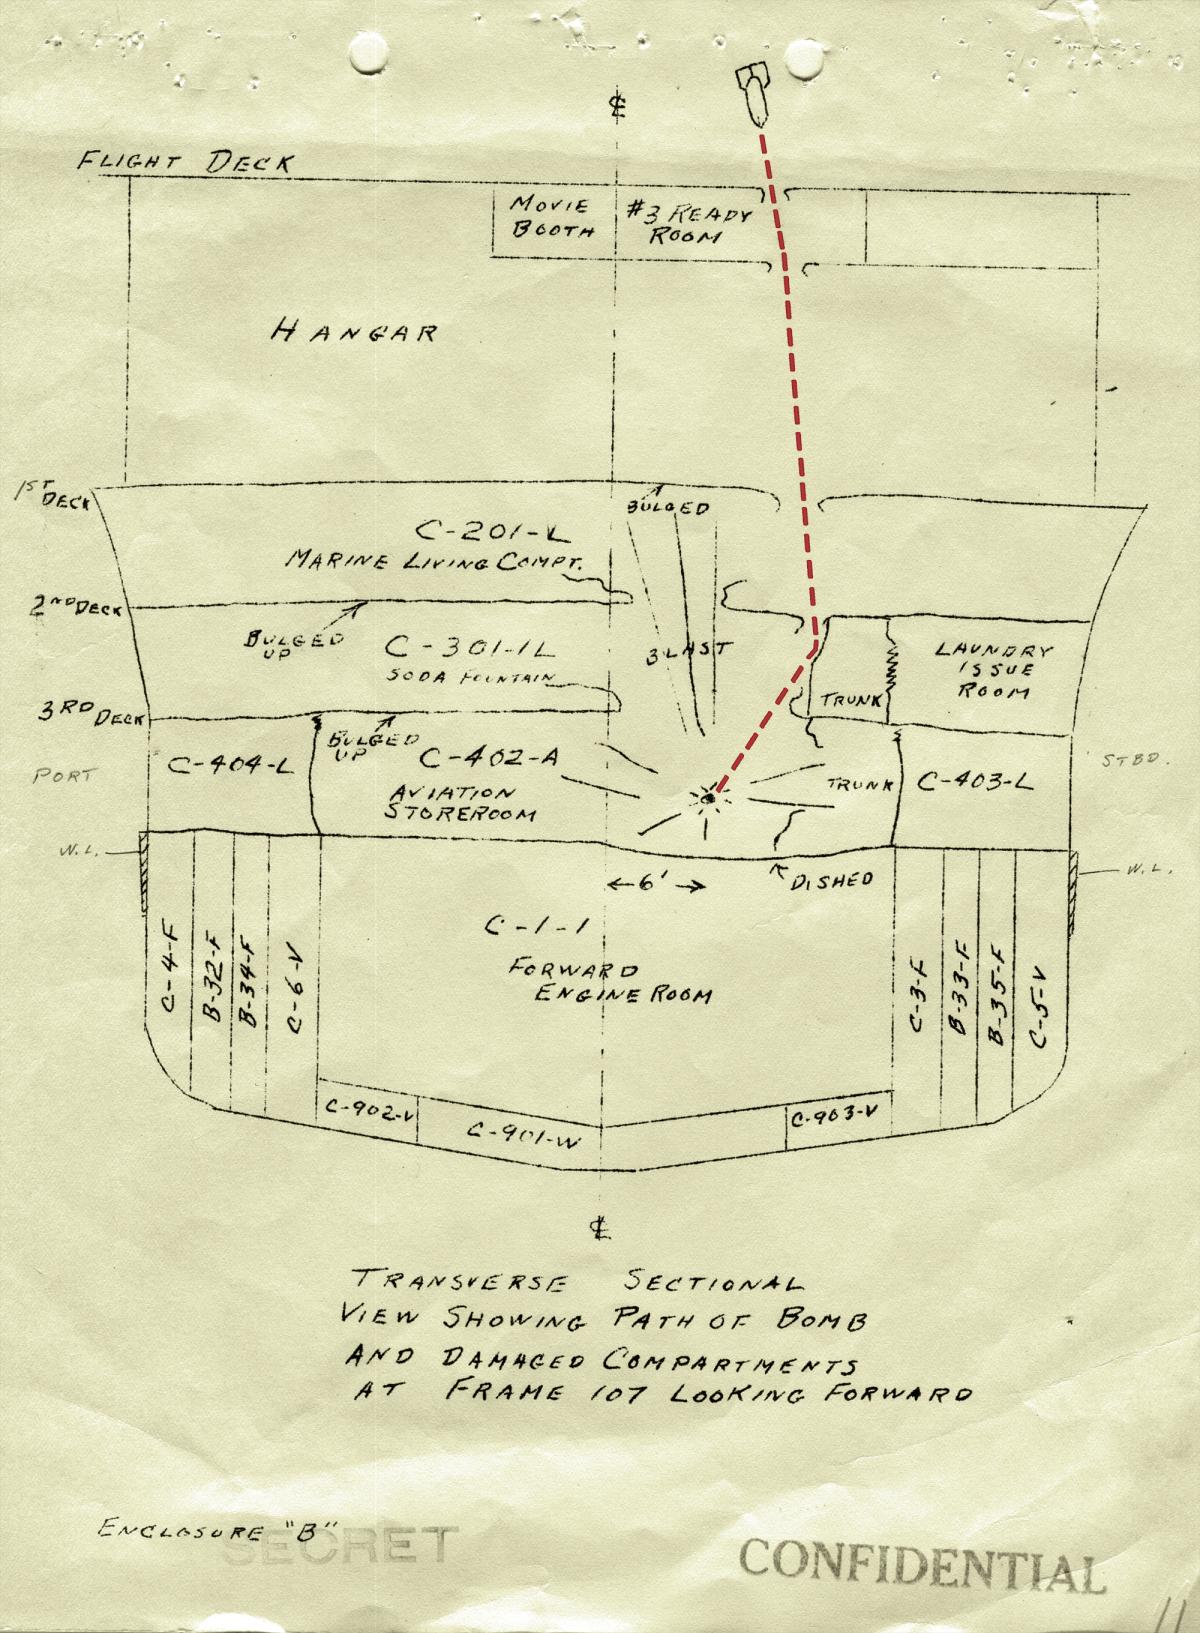 ℄
FLIGHT DECK
MOVIE
BOOTH
#3 READY
ROOM
HANGAR
1ST
DECK
BULGED
C-201-L
MARINE LIVING COMPT.
2ND DECK
BULGED
UP
C-301-1L
SODA FOUNTAIN
BLAST
LAUNDRY
ISSUE
ROOM
TRUNK
3RD DECK
BULGED
UP
C-404-L
C-402-A
AVIATION
STOREROOM
TRUNK
C-403-L
PORT
STBD.
W.L.
W.L.
6'
DISHED
C-1-1
FORWARD
ENGINE ROOM
C-4-F
B-32-F
B-34-F
C-6-V
C-3-F
B-33-F
B-35-F
C-5-V
C-902-V
C-901-W
C-903-V
℄
TRANSVERSE SECTIONAL
VIEW SHOWING PATH OF BOMB
AND DAMAGED COMPARTMENTS
AT FRAME 107 LOOKING FORWARD
ENCLOSURE "B"
SECRET
CONFIDENTIAL
11